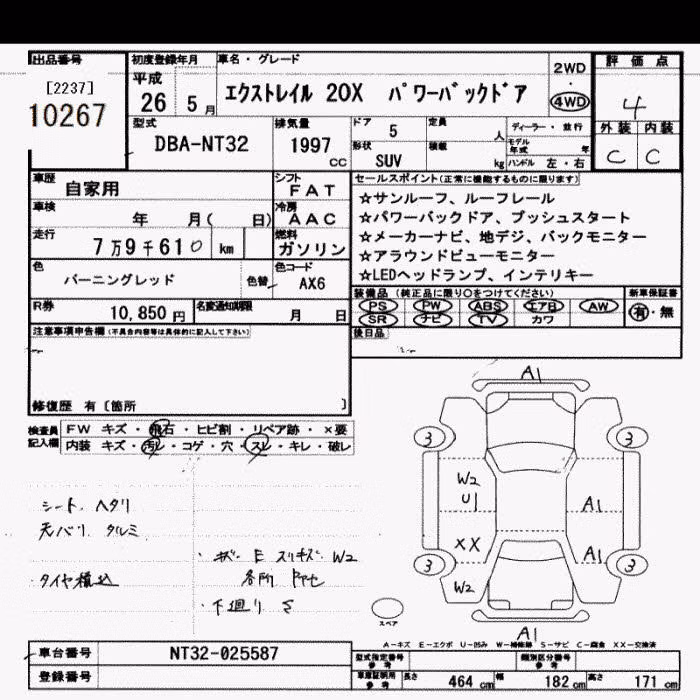 出品番号
[2237]
10267
初度登録年月
平成
26 5月
車名・グレード
エクストレイル 20X パワーバックドア
2WD
4WD
評価点
4
外装 内装
C C
型式
DBA-NT32
排気量
1997
CC
ドア
5
定員
人
形状
SUV
積載
kg
ディーラー・並行
モデル年式
年
ハンドル 左・右
車歴
自家用
シフト
FAT
車検
年 月( 日)
冷房
AAC
走行
7万9千610 km
燃料
ガソリン
色
バーニングレッド
色替
色コード
AX6
R券
10,850円
名変通知期限
月 日
セールスポイント(正常に機能するものに限ります)
☆サンルーフ、ルーフレール
☆パワーバックドア、プッシュスタート
☆メーカーナビ、地デジ、バックモニター
☆アラウンドビューモニター
☆LEDヘッドランプ、インテリキー
装備品(純正品に限り○をつけてください)
新車保証書
PS PW ABS エアB AW
有・無
SR ナビ TV カワ
後日品
注意事項申告欄(不具合内容等は具体的に記入して下さい)
修復歴 有〔箇所 〕
検査員記入欄
FW キズ・飛石・ヒビ割・リペア跡・×要
内装 キズ・汚レ・コゲ・穴・スレ・キレ・破レ
シート、ヘタリ
天バリ タルミ
タイヤ積込
・ギー E スリキズ W2
各所
・下廻り S
A1
3 3
W2
U1
A1
XX
A1
3 3
W2
A1
スペア
A-キズ E-エクボ U-凹み W-補修跡 S-サビ C-腐食 XX-交換済
車台番号
NT32-025587
登録番号
型式指定番号
参考
類別区分番号
参考
車庫証明用
参考
長さ 464 cm 幅 182 cm 高さ 171 cm